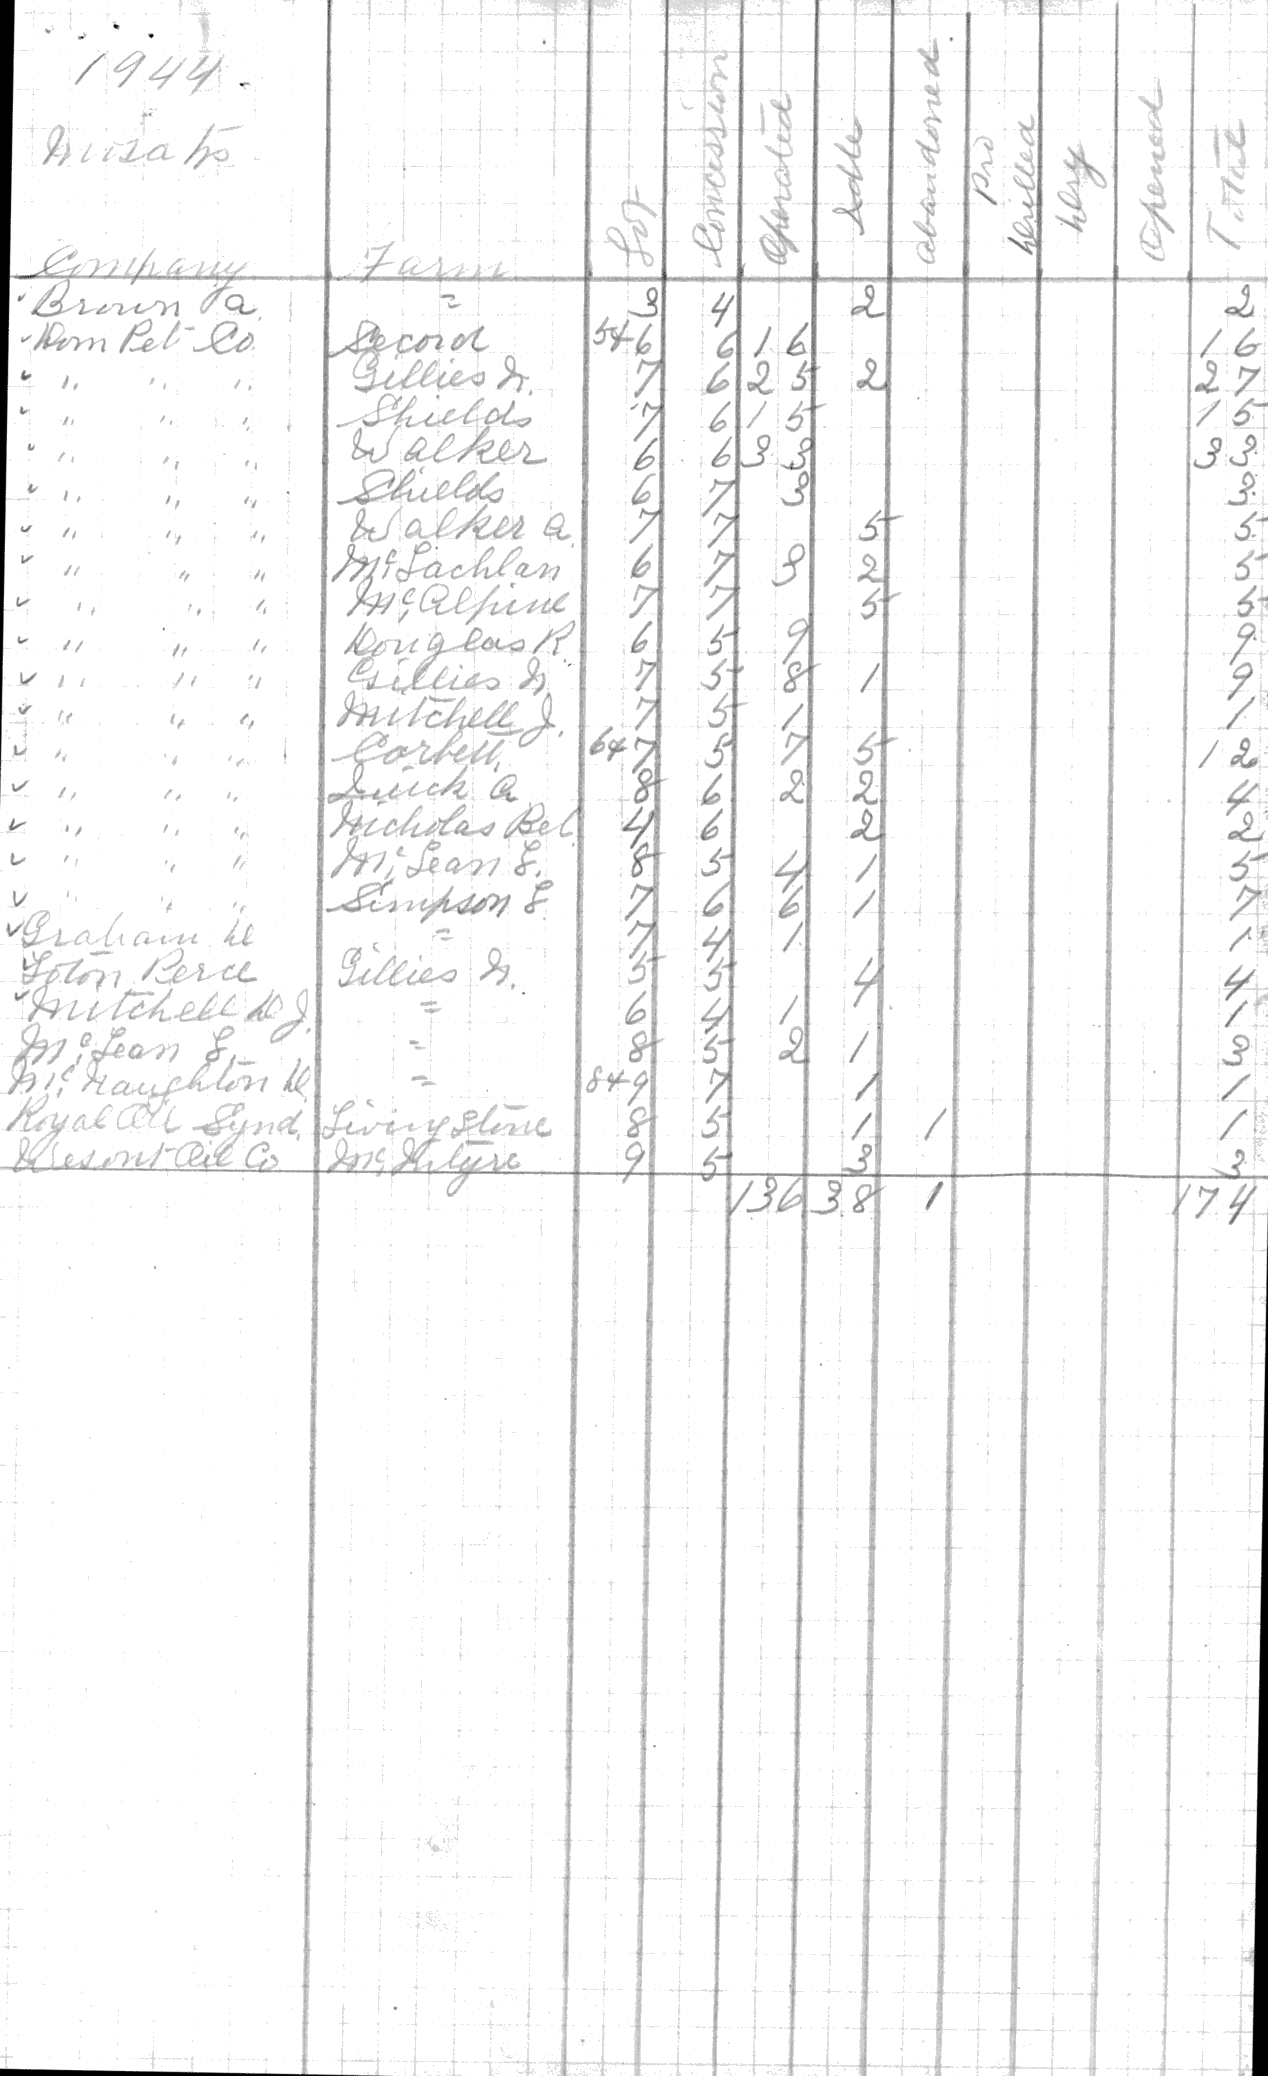 1944.
Mosa Tp
Company Farm Lot Concession Operated Idle abandoned Pro Drilled Dry Opened Total
Brown A. " 3 4 2 2
Dom Pet Co Secord 5+6 6 16 16
" " " Gillies N. 7 6 25 2 27
" " " Shields 7 6 15 15
" " " Walker 6 6 33 33
" " " Shields 6 7 3 3
" " " Walker A. 7 7 5 5
" " " McLachlan 6 7 3 2 5
" " " McAlpine 7 7 5 5
" " " Douglas R. 6 5 9 9
" " " Gillies N. 7 5 8 1 9
" " " Mitchell J. 7 5 1 1
" " " Corbett 6+7 5 7 5 12
" " " Quick A 8 6 2 2 4
" " " Nicholas Bet. 4 6 2 2
" " " McLean L. 8 5 4 1 5
" " " Simpson L 7 6 6 1 7
Graham D " 7 4 1 1
Loton Perce Gillies N. 5 5 4 4
Mitchell D J. " 6 4 1 1
McLean L. " 8 5 2 1 3
McNaughton D. " 8+9 7 1 1
Royal Oil Synd. Livingstone 8 5 1 1 1
Wesont Oil Co McIntyre 9 5 3 3
136 38 1 174